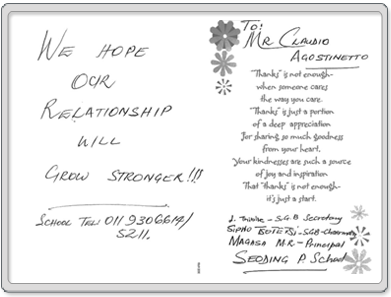 WE HOPE
OUR
RELATIONSHIP
WILL
GROW STRONGER!!!
SCHOOL TEL: 011 9306614/
5211.
TO:
MR CLAUDIO
AGOSTINETTO
"Thanks" is not enough-
when someone cares
the way you care.
"Thanks" is just a portion
of a deep appreciation
For sharing so much goodness
from your heart.
Your kindnesses are such a source
of joy and inspiration
That "thanks" is not enough-
it's just a start.
- S.G.B Secretary
SIPHO - SGB-
MAGASA M.R - Principal
P. School